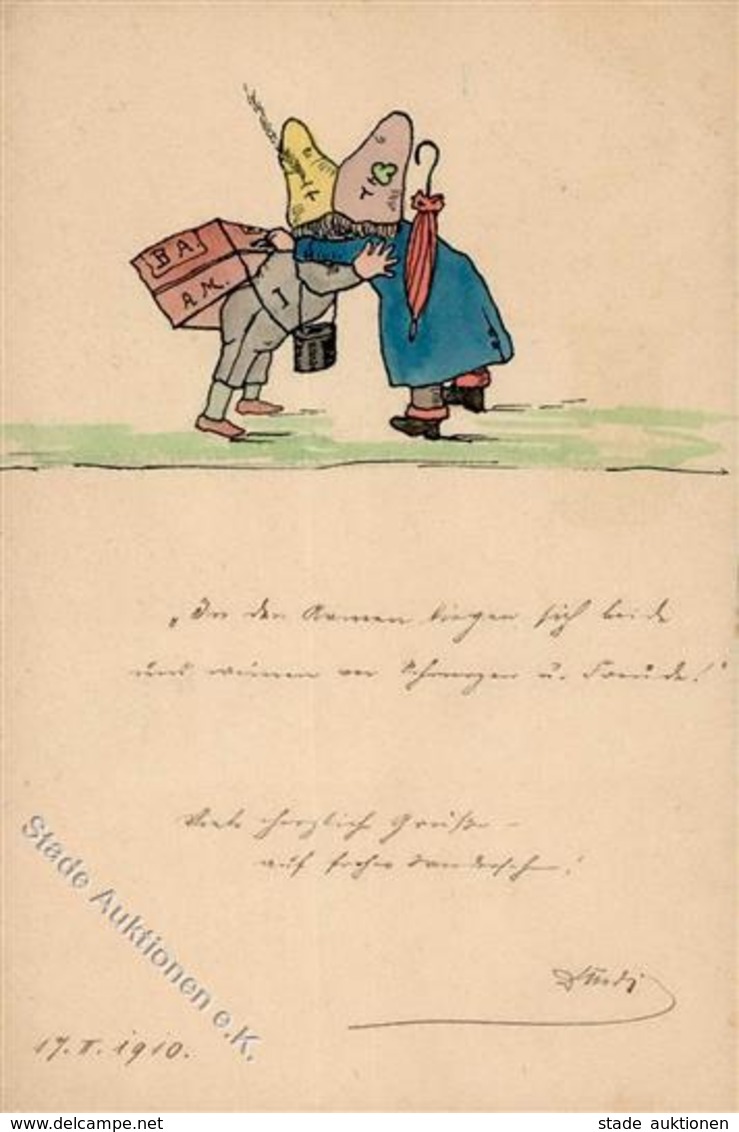 B A.
A M.
I
„In den Armen liegen sich beide
und weinen vor Schmerzen u. Freude!"
Viele herzliche Grüße –
auf frohes Wiedersehen!
17. II. 1910.
Stade Auktionen e.K.
www.delcampe.net
stade auktionen